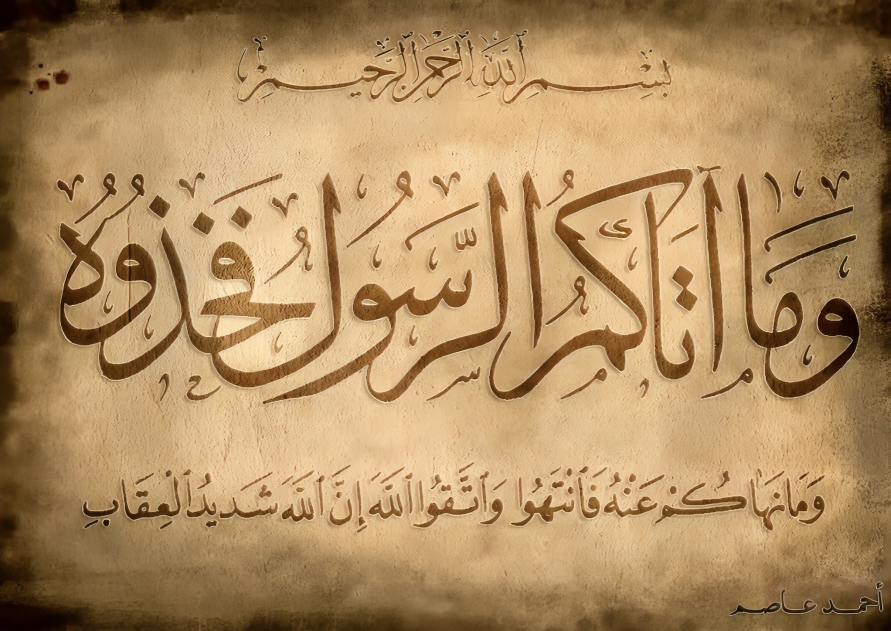 بِسْمِ اللَّهِ الرَّحْمَٰنِ الرَّحِيمِ
وَمَا آتَاكُمُ الرَّسُولُ فَخُذُوهُ
وَمَا نَهَاكُمْ عَنْهُ فَانْتَهُوا وَاتَّقُوا اللَّهَ إِنَّ اللَّهَ شَدِيدُ الْعِقَابِ
أحمد عاصم